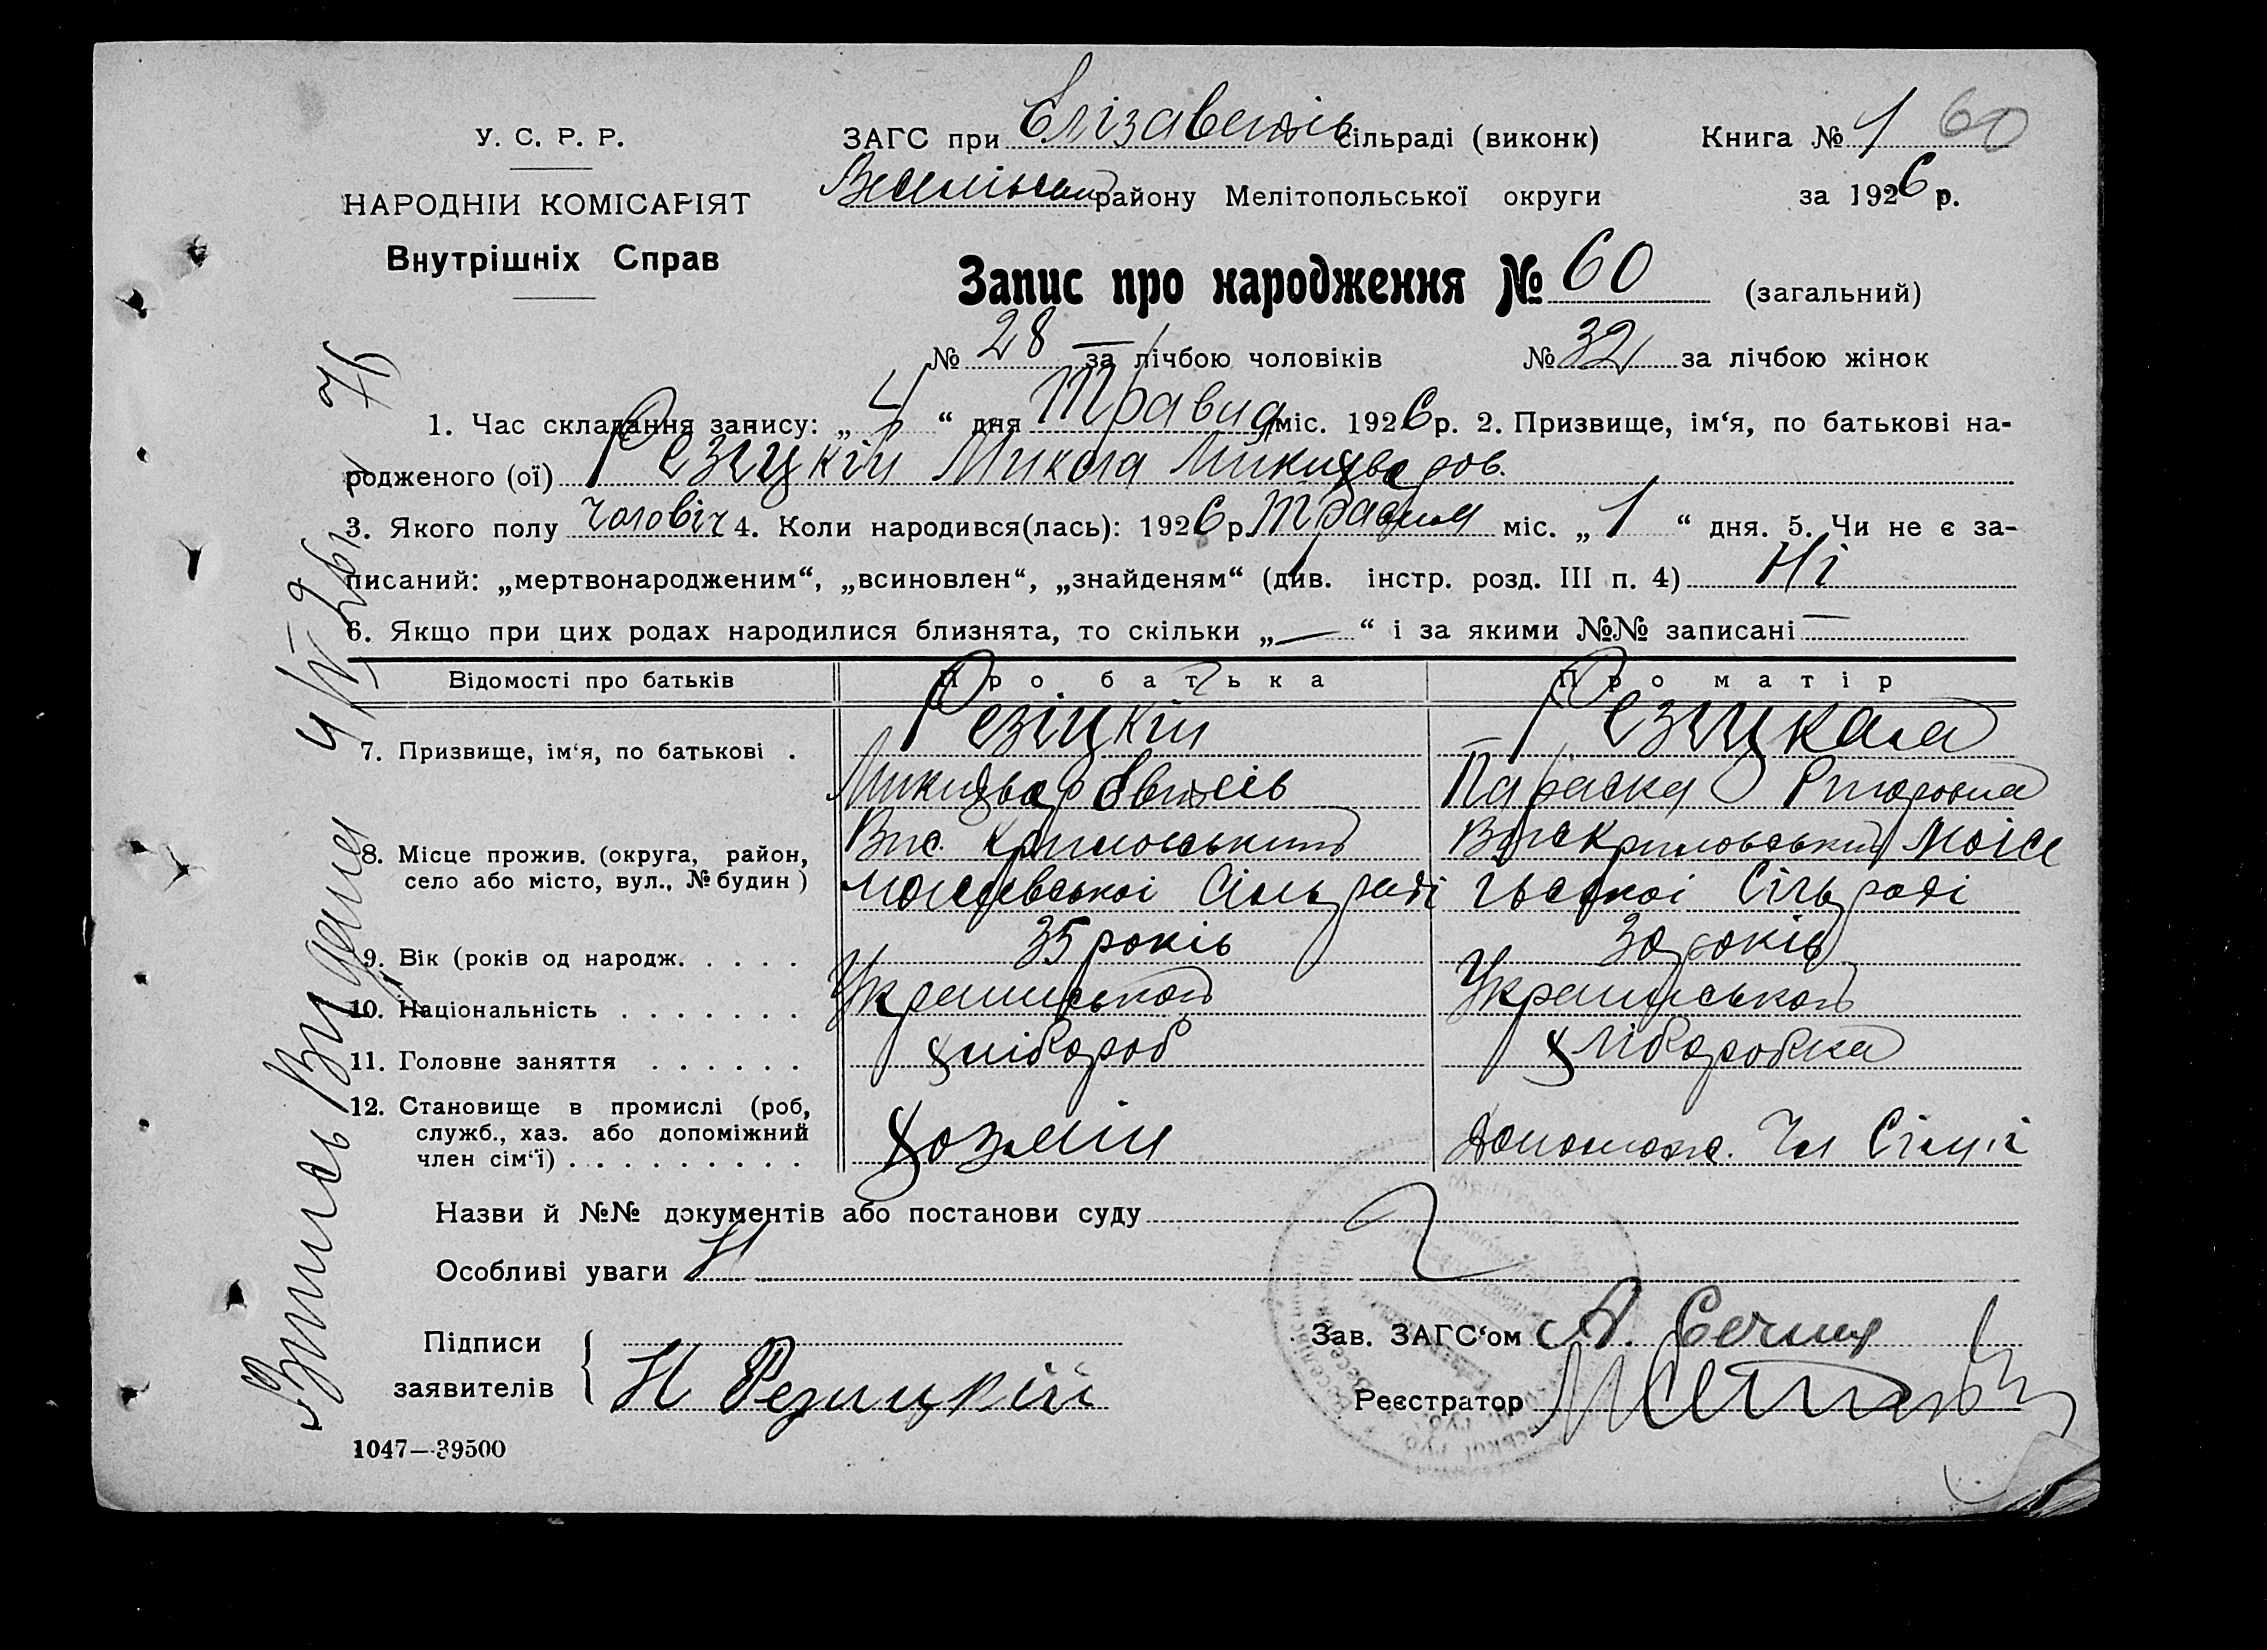 У. С. Р. Р.
НАРОДНІЙ КОМІСАРІЯТ
Внутрішніх Справ
ЗАГС при Елізаветів сільраді (виконк)
району Мелітопольської округи
Книга № 1 60
за 1926 р.
Запис про народження № 60 (загальний)
№ 28 за лічбою чоловіків № 32 за лічбою жінок
1. Час складання запису: „4“ дня Травня міс. 1926 р. 2. Призвище, ім‘я, по батькові на-
родженого (ої) Резицкій Микола
3. Якого полу Чоловіч 4. Коли народився(лась): 1926 р. Травня міс. „1“ дня. 5. Чи не є за-
писаний: „мертвонародженим“, „всиновлен“, „знайденям“ (див. інстр. розд. III п. 4) Ні
6. Якщо при цих родах народилися близнята, то скільки „—“ і за якими №№ записані —
Відомості про батьків Про батька Про матір
7. Призвище, ім‘я, по батькові . Резіцкій Резицкая
Параска
8. Місце прожив. (округа, район,
село або місто, вул., № будин) Сільраді Сільраді
9. Вік (років од народж. . . . . 35 років 30 років
10. Національність . . . . . . .
11. Головне заняття . . . . . . хлібороб хліборобка
12. Становище в промислі (роб,
служб., хаз. або допоміжний
член сім‘ї) . . . . . . . . . Хозяїн Допомож. Чл Сімї
Назви й №№ документів або постанови суду
Особливі уваги
Підписи
заявителів
Н Резицкій
Зав. ЗАГС‘ом А.
Реєстратор
1047—39500
Випись Видана